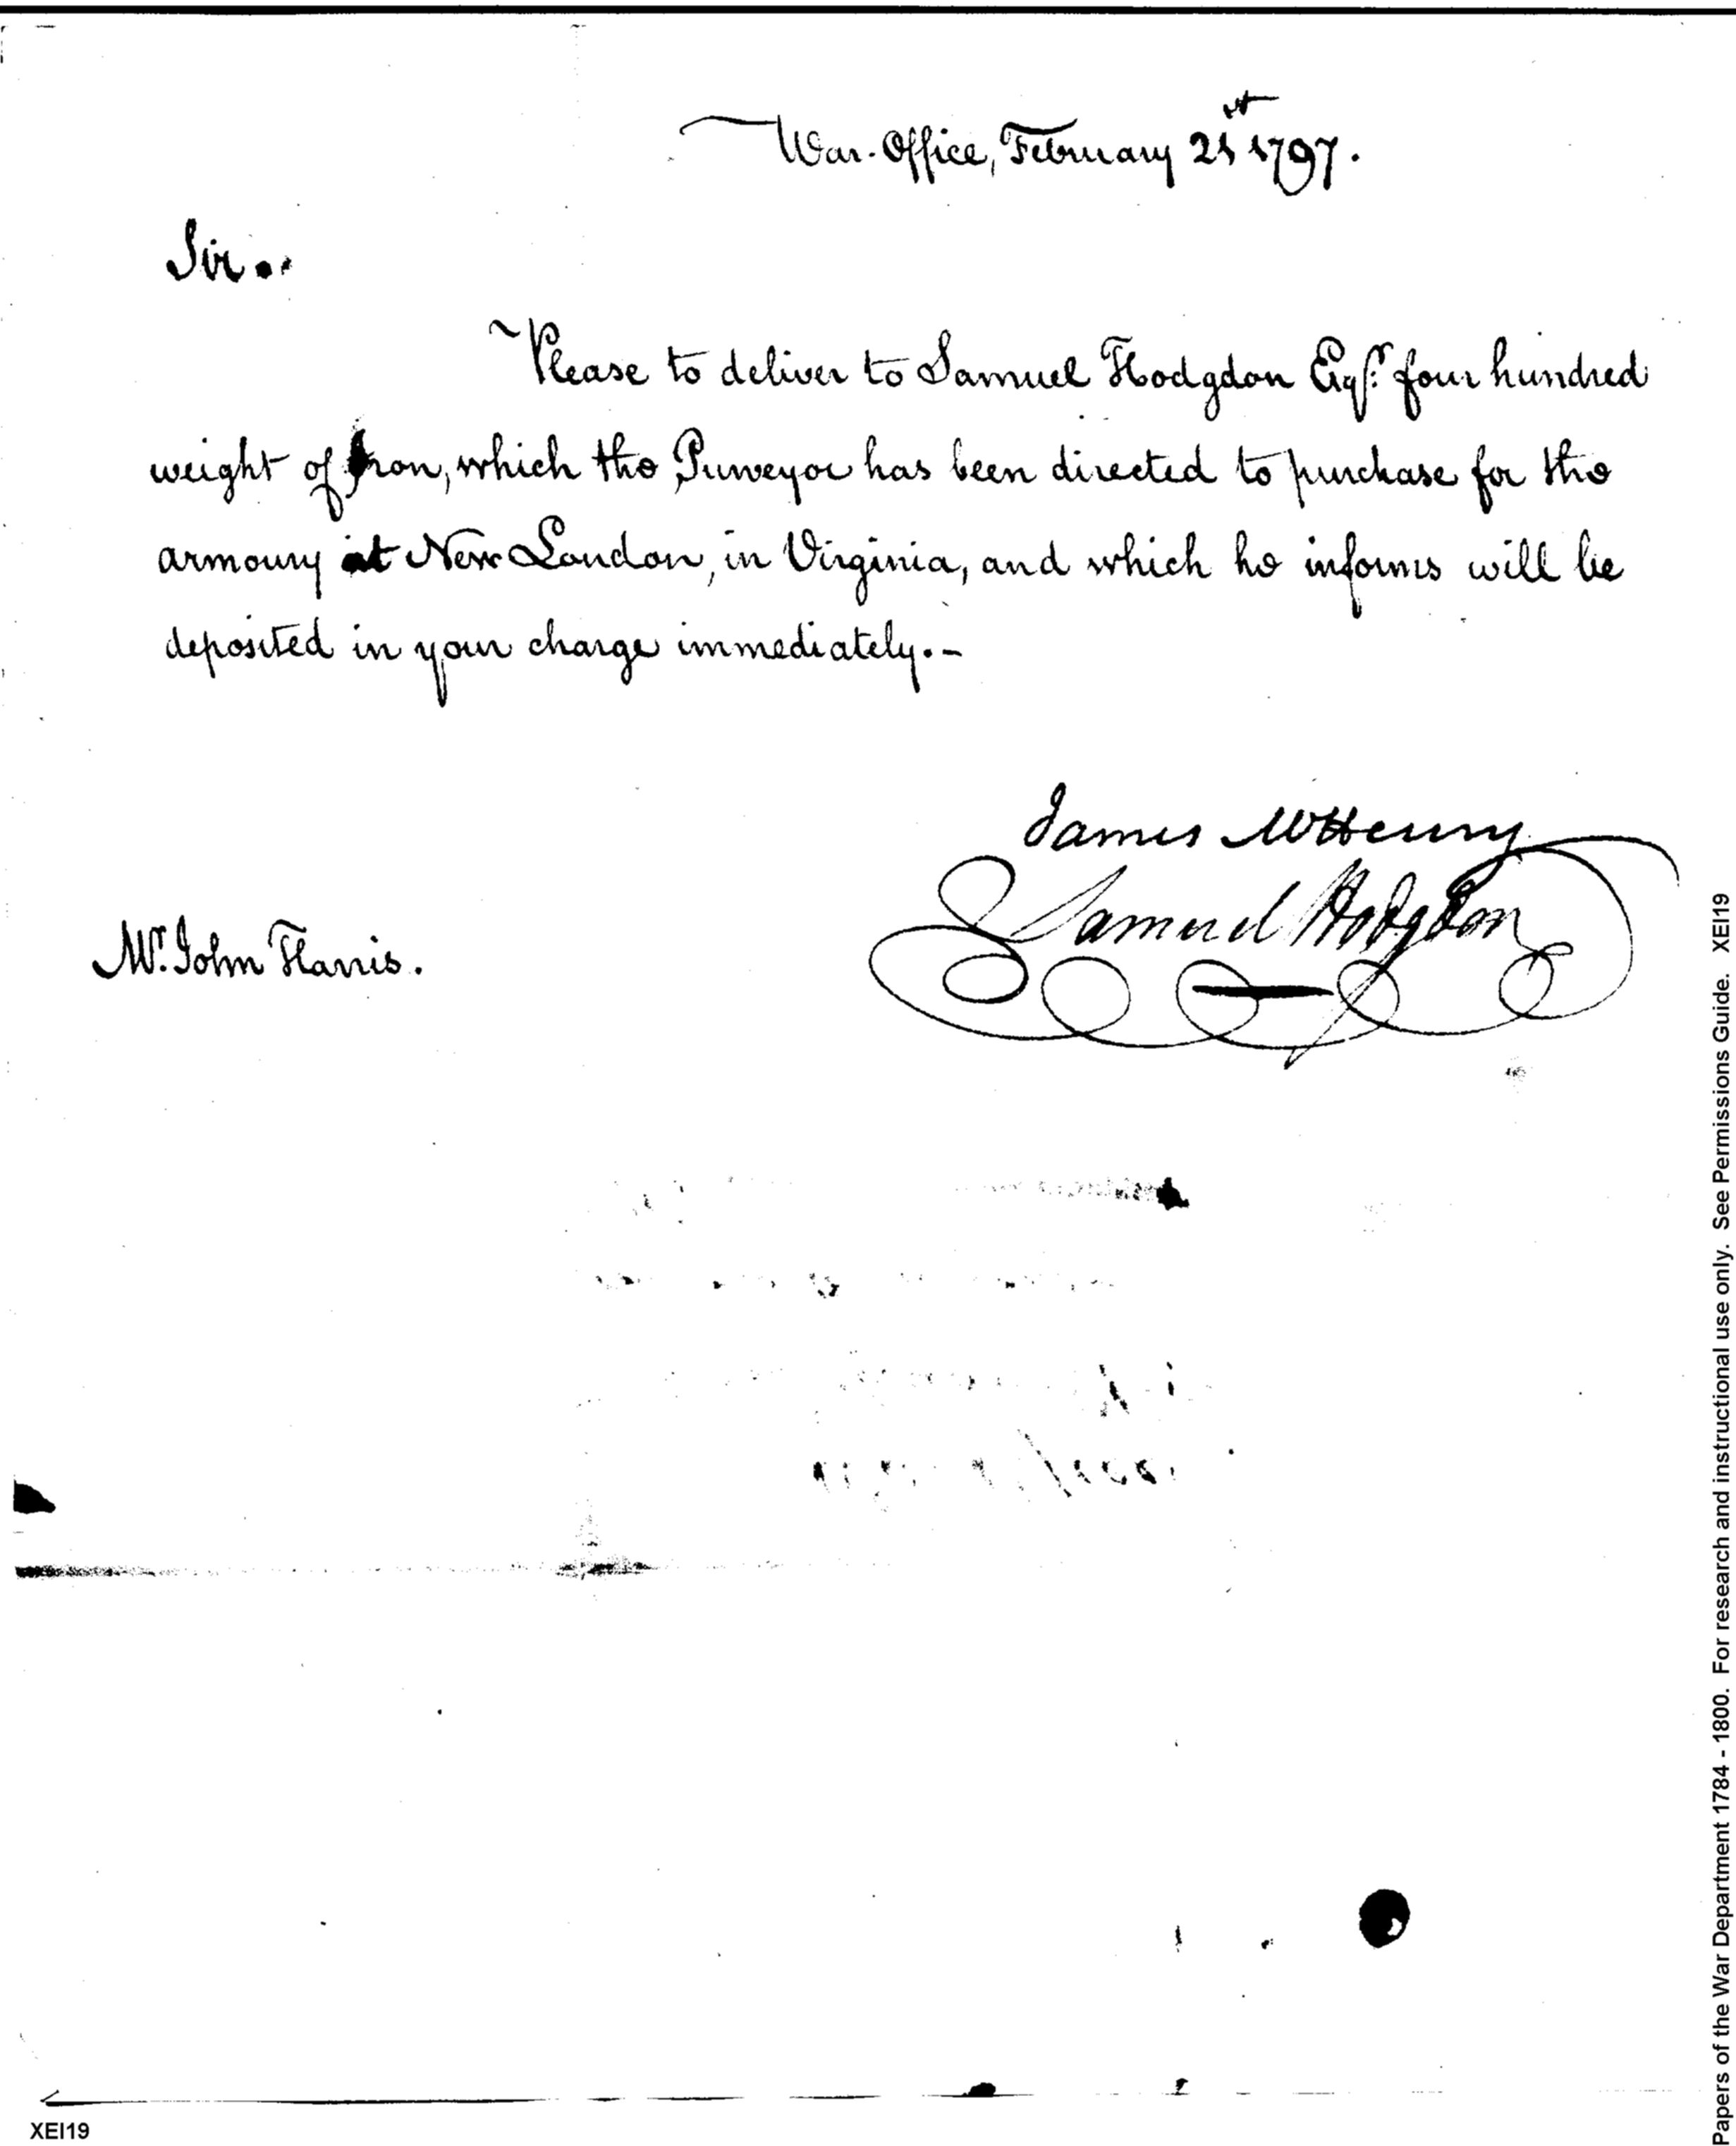 War-Office, February 21st 1797.
Sir..
Please to deliver to Samuel Hodgdon Esqr. four hundred
weight of Iron, which the Purveyor has been directed to purchase for the
armoury at New London, in Virginia, and which he informs will be
deposited in your charge immediately.-
James McHenry
Samuel Hodgdon
Mr. John Harris.
XEI19
Papers of the War Department 1784 - 1800. For research and instructional use only. See Permissions Guide. XEI19